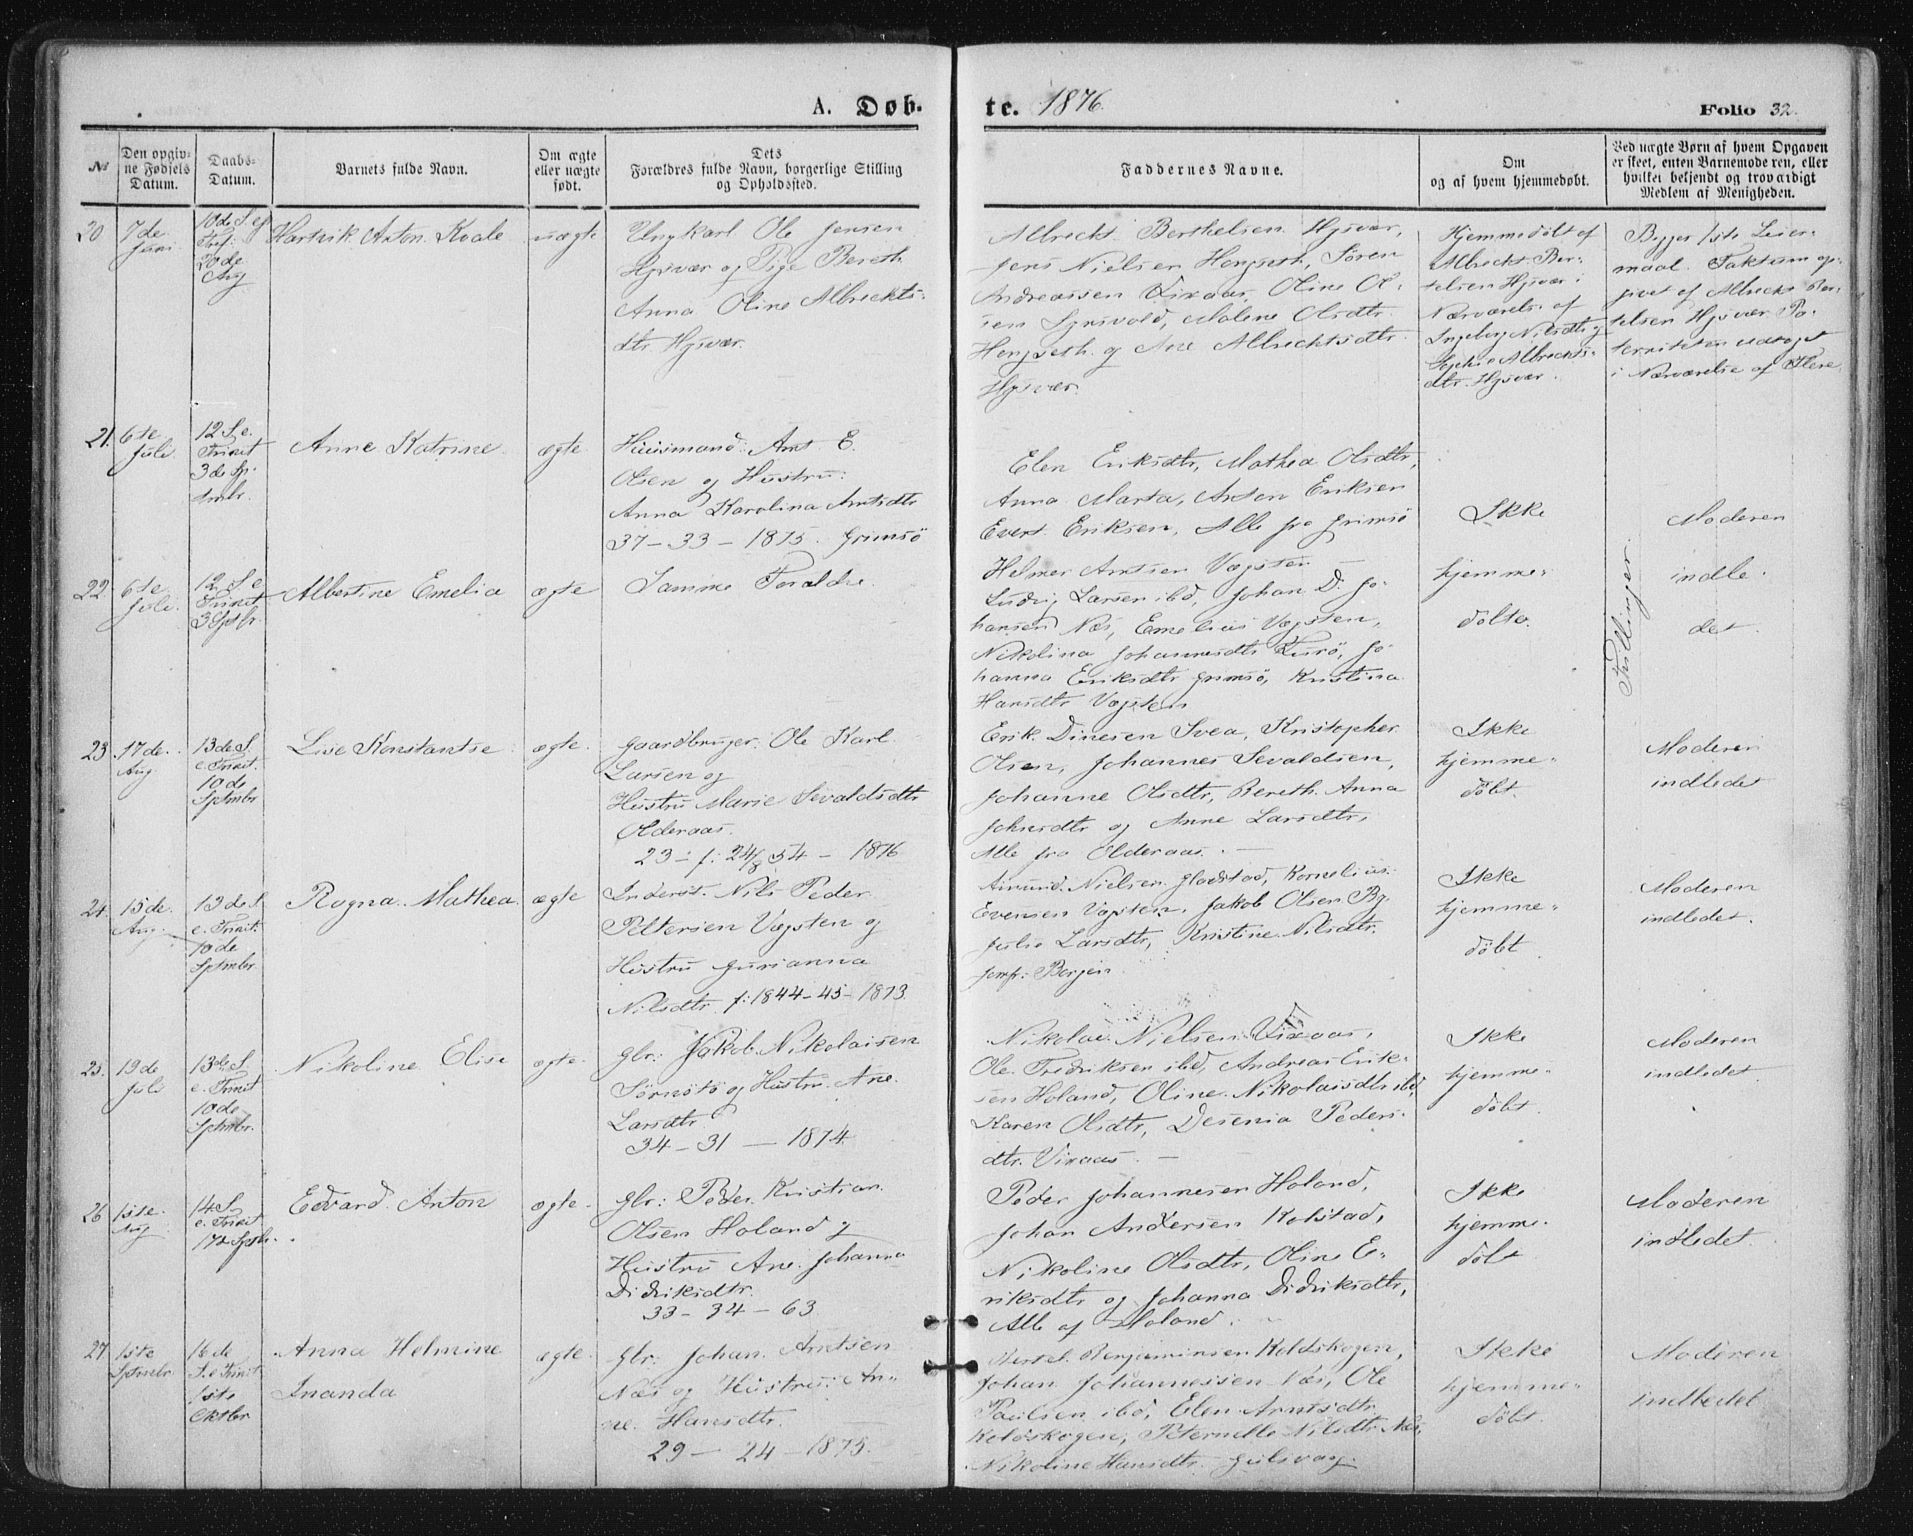 A. Døb-
te. 1876.
Folio 32.
№
Den opgiv-
ne Fødsels
Datum.
Daabs-
Datum.
Barnets fulde Navn.
Om ægte
eller uægte
født.
Dets
Forældres fulde Navn, borgerlige Stilling
og Opholdssted.
Faddernes Navne.
Om
og af hvem hjemmedøbt.
Ved uægte Børn af hvem Opgaven
er skeet, enten Barnemoderen, eller
hvilket bekjendt og troværdigt
Medlem af Menigheden.
20
7de
Juni
10de S. e.
Tref:
20de
Aug
Hartvik Anton Kvale
uægte
Ungkarl Ole Jensen
Hysvær og Pige Bereth
Anna Oline Albrechts-
dtr Hysvær.
Albrecht Berthelsen Hysvær,
Jens Nielsen Hongseth, Søren
Andreassen Vixaas, Oline Ol-
sen, Malene Olsdtr.
Hongseth og Ane Albrechtsdtr.
Hysvær.
Hjemmedøbt af
Albrecht Ber-
telsen Hysvær i
Nærværelse af
Ingeborg Nilsdtr og
Sophie Albrechts-
dtr. Hysvær.
Begges 1ste Leier-
maal. Faktum op-
givet af Albrecht Ber-
telsen Hysvær. Pa-
terniteten udsagt
i Nærværelse af Flere
21.
6te
Juli
12 S. e.
Trinit
3de Sp-
tmbr.
Anne Katrine
ægte
Huusmand: Arnt E.
Olsen og Hustru:
Anna Karolina Arntsdtr
37 - 33 - 1875. Grimsö
Elen Eriksdtr, Mathea Olsdtr,
Anna Marta, Anton Eriksen
Evert Eriksen, Alle fra Grimsö
Ikke
Moderen
22.
6te
Juli.
12 S. e
Trinit
3 Sptbr.
Albertine Emelia
ægte
Samme Forældre.
Helmer Arntsen Vægsten
Ludvig Larsen ibd, Johan D. Jo-
hansen Næs, Emelius Vægsten,
Nikolina Johannesdtr Kurö, Jo-
hanna Eriksdtr Grimsö, Kristina
Hansdtr Vægsten
hjemme-
døbte.
Tvillinger.
indle
det.
23.
17de
Aug
13de S.
e. Trinit.
10de
Sptmbr
Lise Konstantse
ægte.
Gaardbruger: Ole Karl
Larsen og
Hustru Marie Sevaldsdtr
Olderaas.
23 - f: 24/8 54 - 1876
Erik Dinesen Svea, Kristopher
Olsen, Johannes Sevaldsen,
Johanne Olsdtr, Bereth Anna
Johnsdtr og Anne Larsdtr,
Alle fra Olderaas. —
Ikke
hjemme-
døbt.
Moderen
indledet
24.
15de
Aug.
13de S
e. Trinit.
10de
Sptmbr
Ragna Mathea
ægte
Inderst. Nils Peder
Pettersen Vægsten og
Hustru Gurianna
Nilsdtr. f: 1844 - 45 - 1873.
Amund Nielsen Gladstad, Kornelius
Evensen Vægsten, Jakob Olsen By.
Julie Larsdtr, Kristine Nilsdtr.
Jomfr: Borgen.
Ikke
hjemme-
døbt
Moderen
indledet.
25.
19de
Juli
13de S
e. Trinit
10de
Sptmbr.
Nikoline Elise
ægte.
Gbr: Jakob Nikolaisen
Sørnstö og Hustru Ane
Larsdtr.
34 - 31 — 1874.
Nikolai Nielsen Vixaas,
Ole Fredriksen ibd, Andreas Erik-
sen Holand, Oline Nikolaisdtr ibd,
Karen Olsdtr, Desenia Peders-
dtr. Vixaas. —
Ikke
hjemme-
døbt.
Moderen
indledet
26
1ste
Aug
14 S
e. Trinit
17d Sptbr.
Edvard Anton
ægte.
Gbr: Peder Kristian
Olsen Holand og
Hustru Ane Johanna
Didriksdtr.
33 - 34 - 63.
Peder Johannesen Holand,
Johan Andersen Kolstad,
Nikoline Olsdtr, Oline E-
riksdtr og Johanna Didriksdtr,
Alle af Holand. —
Ikke
hjemme-
døbt
Moderen
indledet.
27
1ste
Sptmbr
16de
S. e Trinit
1ste
Oktbr
Anna Helmine
Inanda
ægte.
Gbr: Johan Arntsen
Næs og Hustru: An-
ne Hansdtr.
29 — 24 - 1875.
Bertel Benjaminsen Koldskogen,
Johan Johannessen Næs, Ole
Paulsen ibd, Elen Arntsdtr.
Koldskogen, Peternelle Nilsdtr Næs,
Nikoline Hansdtr.
Ikke
hjemme-
døbt.
Moderen
indledet